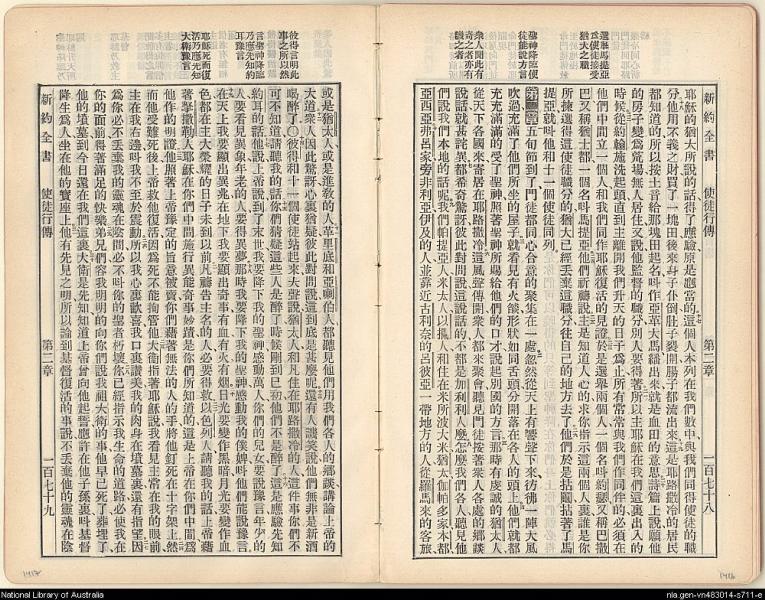 新約全書 使徒行傳 第二章 一百七十八
選舉馬提亞
為使徒接受
猶大之職
聖神降臨使
徒能說方言
眾人聞此有
奇之者亦有
譏之者
耶穌的猶大所說的話得了應驗原是應當的這個人本列在我們數中與我們同得使徒的職
分他用不義之財買了一塊田後來身子仆倒肚子裂開腸子都流出來這是耶路撒冷的居民
都知道的所以按土音給那塊田起名叫作亞革大馬繙出來就是血田的意思詩篇上說願他
的房子變為荒場無人居住又說他監督的職分別人要得著所以主耶穌在我們這裏出入的
時候從約翰施洗起頭直到主離開我們升天的日子為止所有常常與我們作同伴的必須在
他們中間立一個人和我們同作耶穌復活的見證於是選舉兩個人一個名叫約瑟又稱巴撒
巴又稱猶士都一個名叫馬提亞他們祈禱說主是知道人心的求你指示這兩個人裏誰是你
所揀選得這使徒職分的猶大已經丟棄這職分往自己的地方去了他們於是拈鬮拈著了馬
提亞就叫他和十一個使徒同列
第二章 五旬節到了門徒都同心合意的聚集在一處忽然從天上有響聲下來彷彿一陣大風
吹過充滿了他們所坐的屋子就看見有火燄形狀如同舌頭分開落在各人的頭上他們就都
充充滿滿的受了聖神照著聖神所賜給他們的口才說起別國的方言那時有虔誠的猶太人
從天下各國來寄居在耶路撒冷這風聲傳開眾人都來聚會聽見門徒按著眾人各處的鄉談
說話就甚詫異都希奇驚訝彼此對問說這說話的不都是加利利人麼怎麼我們各人聽見他
們說我們本地的話呢我們帕提亞人米太人以攔人和住在米所波大米猶太伽帕多家本都
亞西亞弗呂家旁非利亞伊及的人並靠近古利奈的呂彼亞一帶地方的人從羅馬來的客旅
彼得言明此
事之所以然
言聖神降臨
乃應先知約
耳豫言
耶穌死而復
活乃應先知
大衛豫言
或是猶太人或是進教的人革里底和亞喇伯人都聽見他們用我們各人的鄉談講論上帝的
大道眾人因此驚訝心裏猶疑彼此對問說這到底是甚麼呢還有人譏笑說他們無非是新酒
喝醉了○彼得和十一個使徒站起來大聲說猶太人和凡住在耶路撒冷的人這件事你們不
可不知道請聽我的話你們猜疑這些人是醉了時候剛到巳初他們不是醉了這是應驗先知
約耳的話他說上帝說到了末世我要降下我的聖神感動萬人你們的兒女要說豫言年少的
人要看見異象年老的人要得異夢那時我要降下我的聖神感動我的僕婢叫他們能說豫言
在天上我要顯出異兆在地下我要顯出奇事有血有火有烟日光要變作黑暗月光要變作血
色都在主大榮耀的日子未到以前凡禱告主名的人必要得救以色列人請聽我的話上帝藉
著拏撒勒人耶穌在你們中間施行異能奇事妙蹟是你們所知道的這是上帝在你們中間為
他作的明證他照著上帝豫定的旨意被賣你們藉著無法的人的手將他釘死在十字架上然
而他受難死後上帝救他復活因為死不能拘管他大衛指著耶穌說我看見主常在我的眼前
主在我右邊叫我不至於震動所以我心裏歡喜我口裏讚美我的肉身在墳墓裏還有指望因
為你必不丟棄我的靈魂在陰間必不叫你的聖者朽壞你已經指示我生命的道路必使我在
你的面前得著滿足的快樂弟兄們容我明明的向你們說我祖大衛的事他早已死了葬埋了
他的墳墓到今日還在我們這裏大衛是先知知道上帝曾向他起誓應許在他子孫裏叫基督
降生為人坐在他的寶座上他有先見之明所以論到基督復活的事說不丟棄他的靈魂在陰
新約全書 使徒行傳 第二章 一百七十九
1417
1416
National Library of Australia
nla.gen-vn483014-s711-e